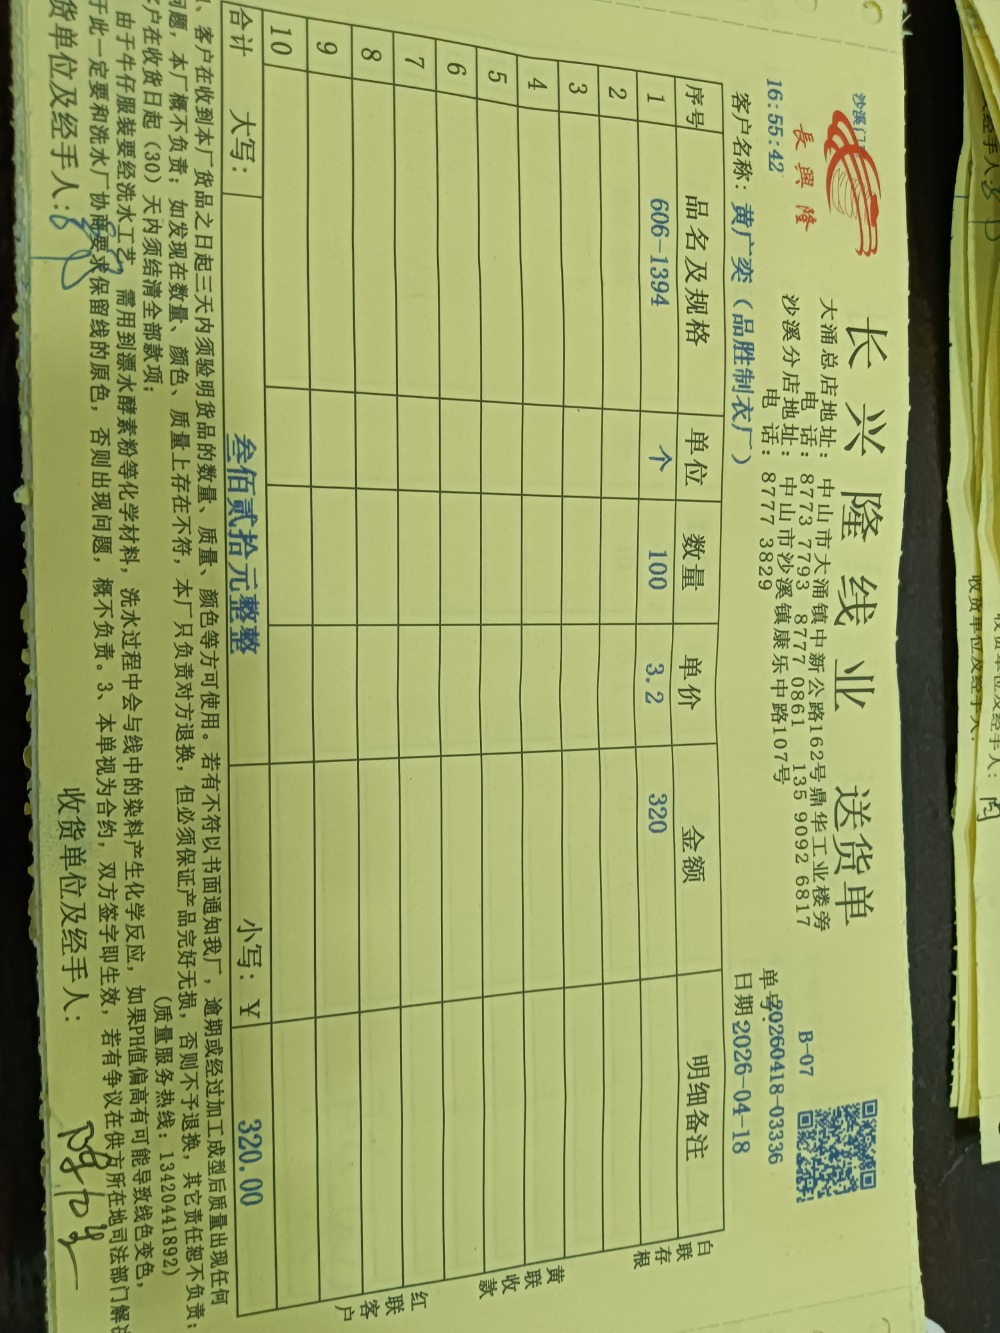 沙溪门
長興隆
长兴隆线业 送货单
大涌总店地址: 中山市大涌镇中新公路162号鼎华工业楼旁
电 话: 8773 7793 8777 0861 135 9092 6817
沙溪分店地址: 中山市沙溪镇康乐中路107号
电 话: 8777 3829
16:55:42
B-07
单号: 20260418-03336
客户名称: 黄广奕(品胜制衣厂)
日期 2026-04-18
序号 品名及规格 单位 数量 单价 金额 明细备注
1 606-1394 个 100 3.2 320
2
3
4
5
6
7
8
9
10
合计 大写: 叁佰贰拾元整整 小写: ¥ 320.00
白联存根
黄联收款
红联客户
、客户在收到本厂货品之日起三天内须验明货品的数量、质量、颜色等方可使用。若有不符以书面通知我厂,逾期或经过加工成型后质量出现任何
问题,本厂概不负责;如发现在数量、颜色、质量上存在不符,本厂只负责对方退换,但必须保证产品完好无损,否则不予退换,其它责任恕不负责;
客户在收货日起(30)天内须结清全部款项; (质量服务热线:13420441892)
由于牛仔服装要经洗水工艺,需用到漂水酵素粉等化学材料,洗水过程中会与线中的染料产生化学反应,如果PH值偏高有可能导致线色变色,
于此一定要和洗水厂协商要求保留线的原色,否则出现问题,概不负责。3、本单视为合约,双方签字即生效,若有争议在供方所在地司法部门解决
货单位及经手人: 收货单位及经手人:
收货单位及经手人: